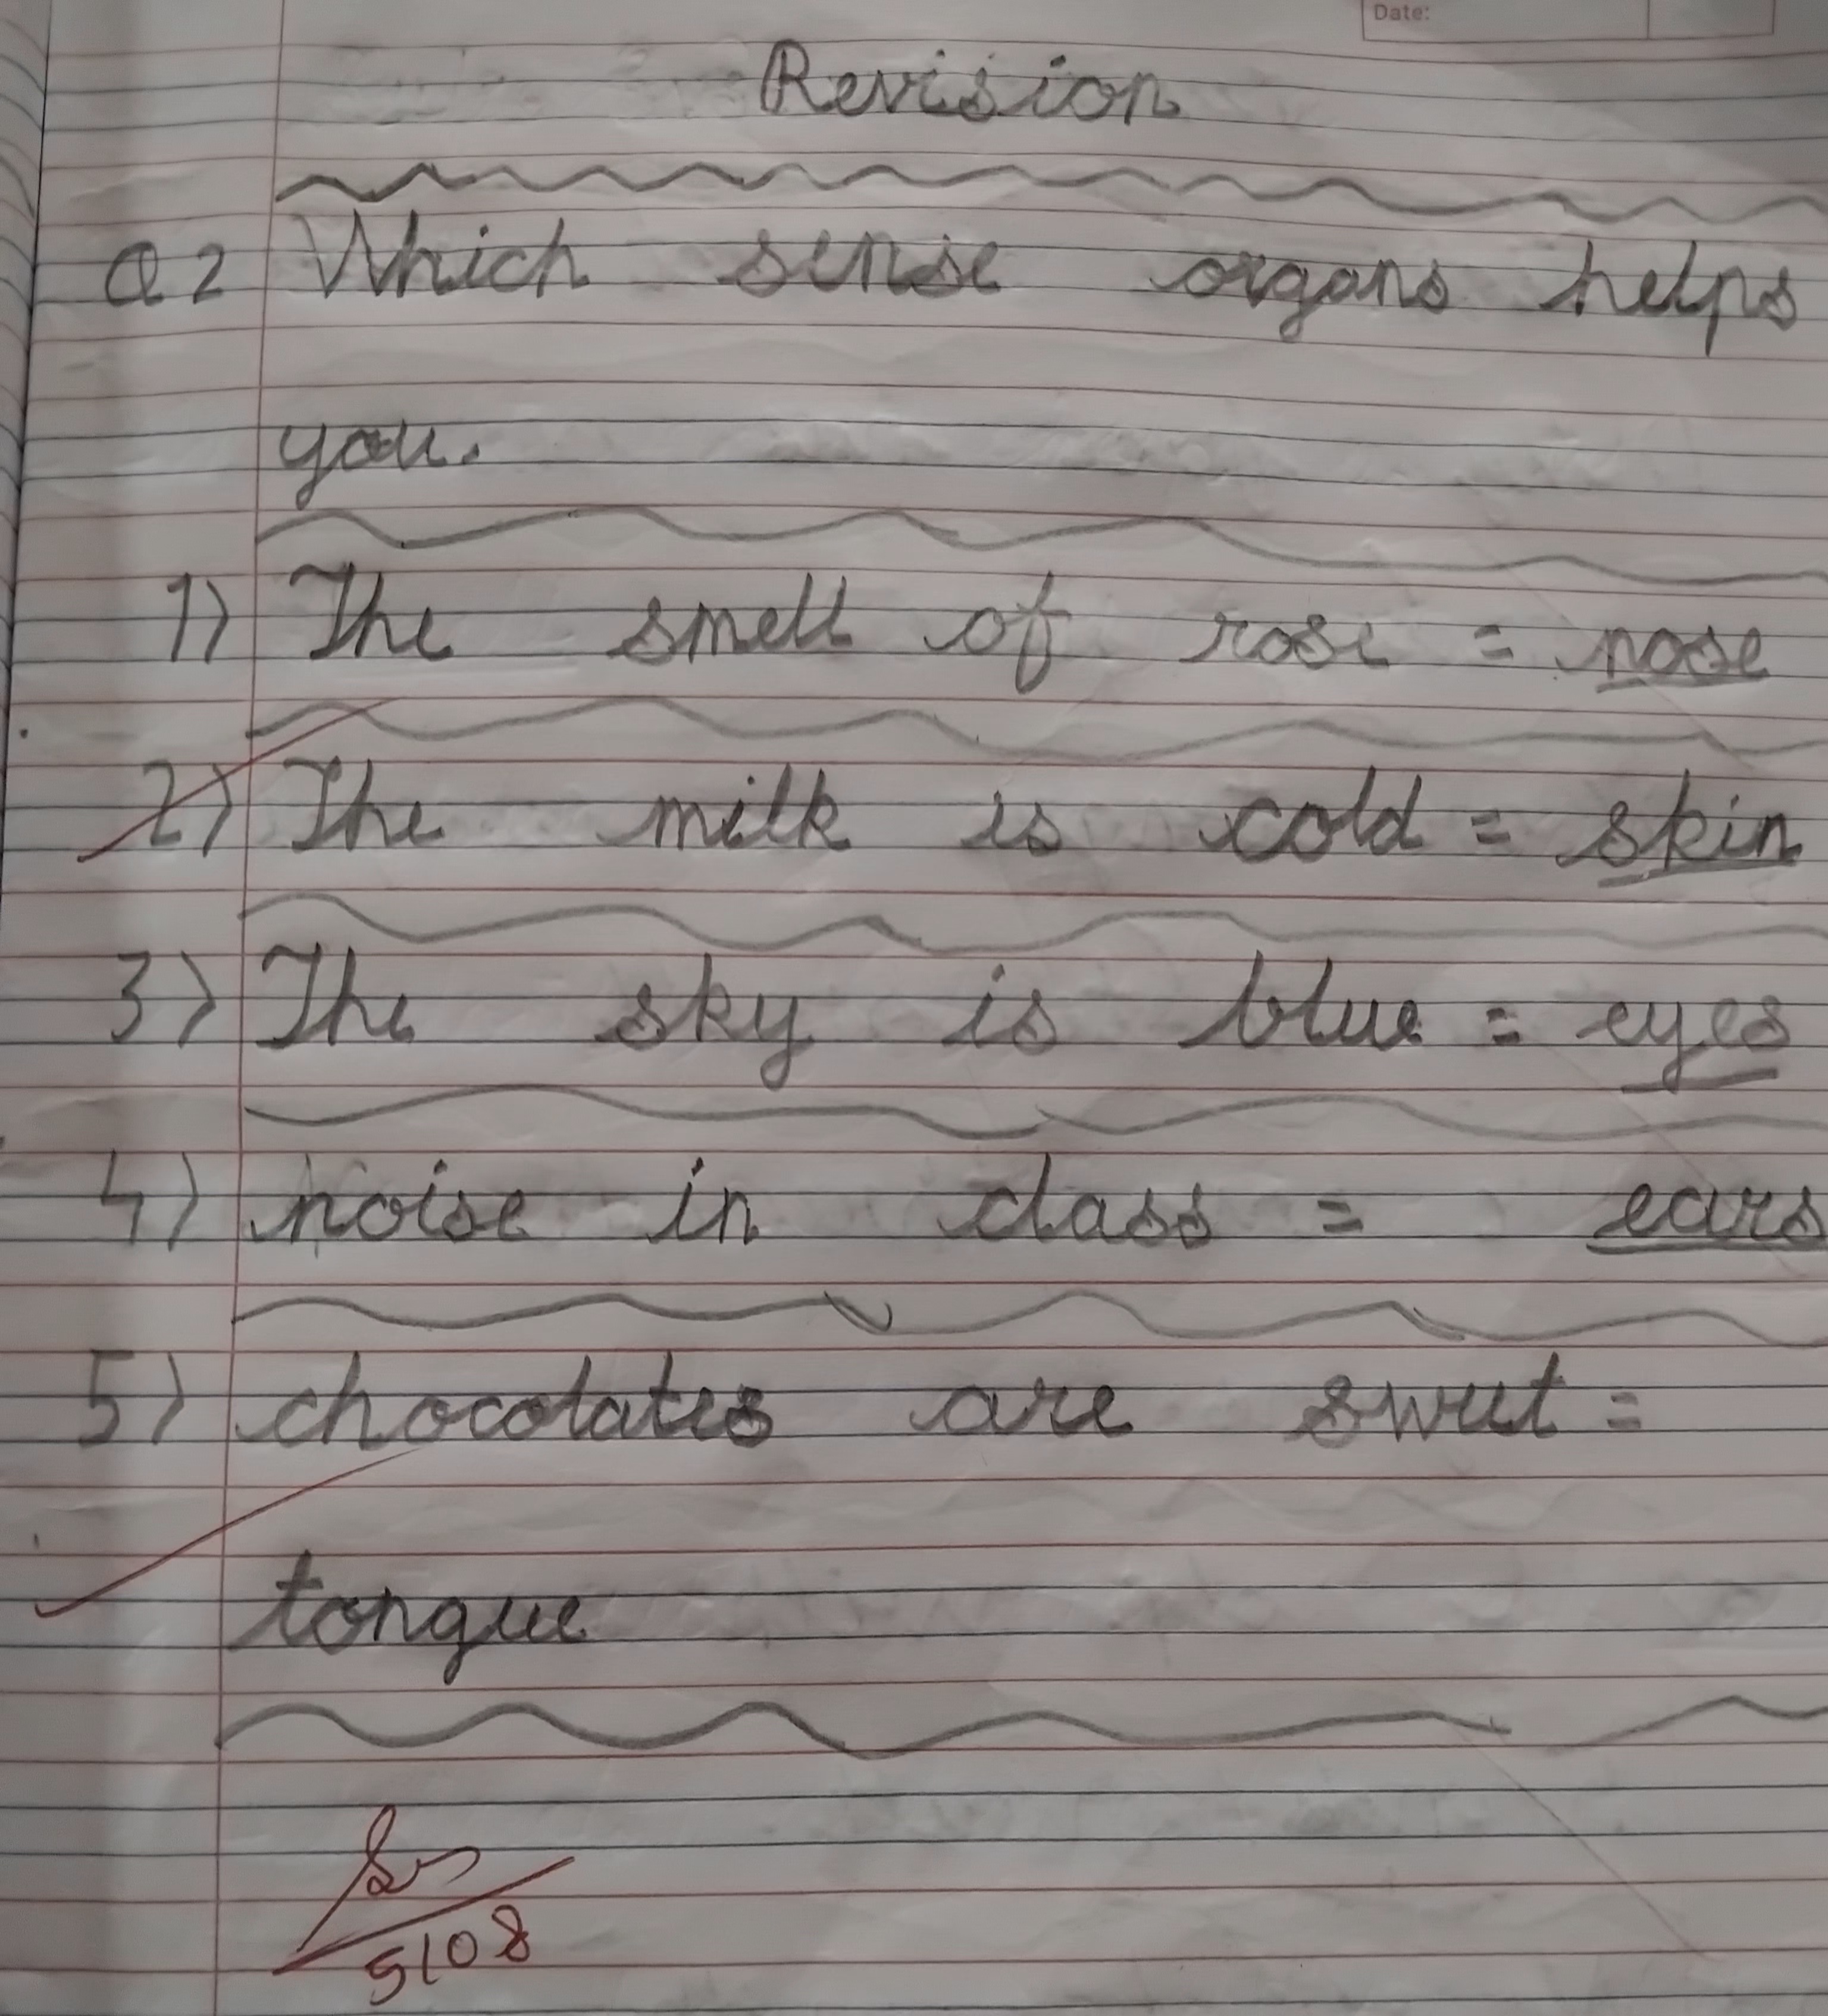 Date:
Revision
Q2 Which sense organs helps
you.
1) The smell of rose = nose
2) The milk is cold = skin
3) The sky is blue = eyes
4) noise in class = ears
5) chocolates are sweet =
tongue
5/08